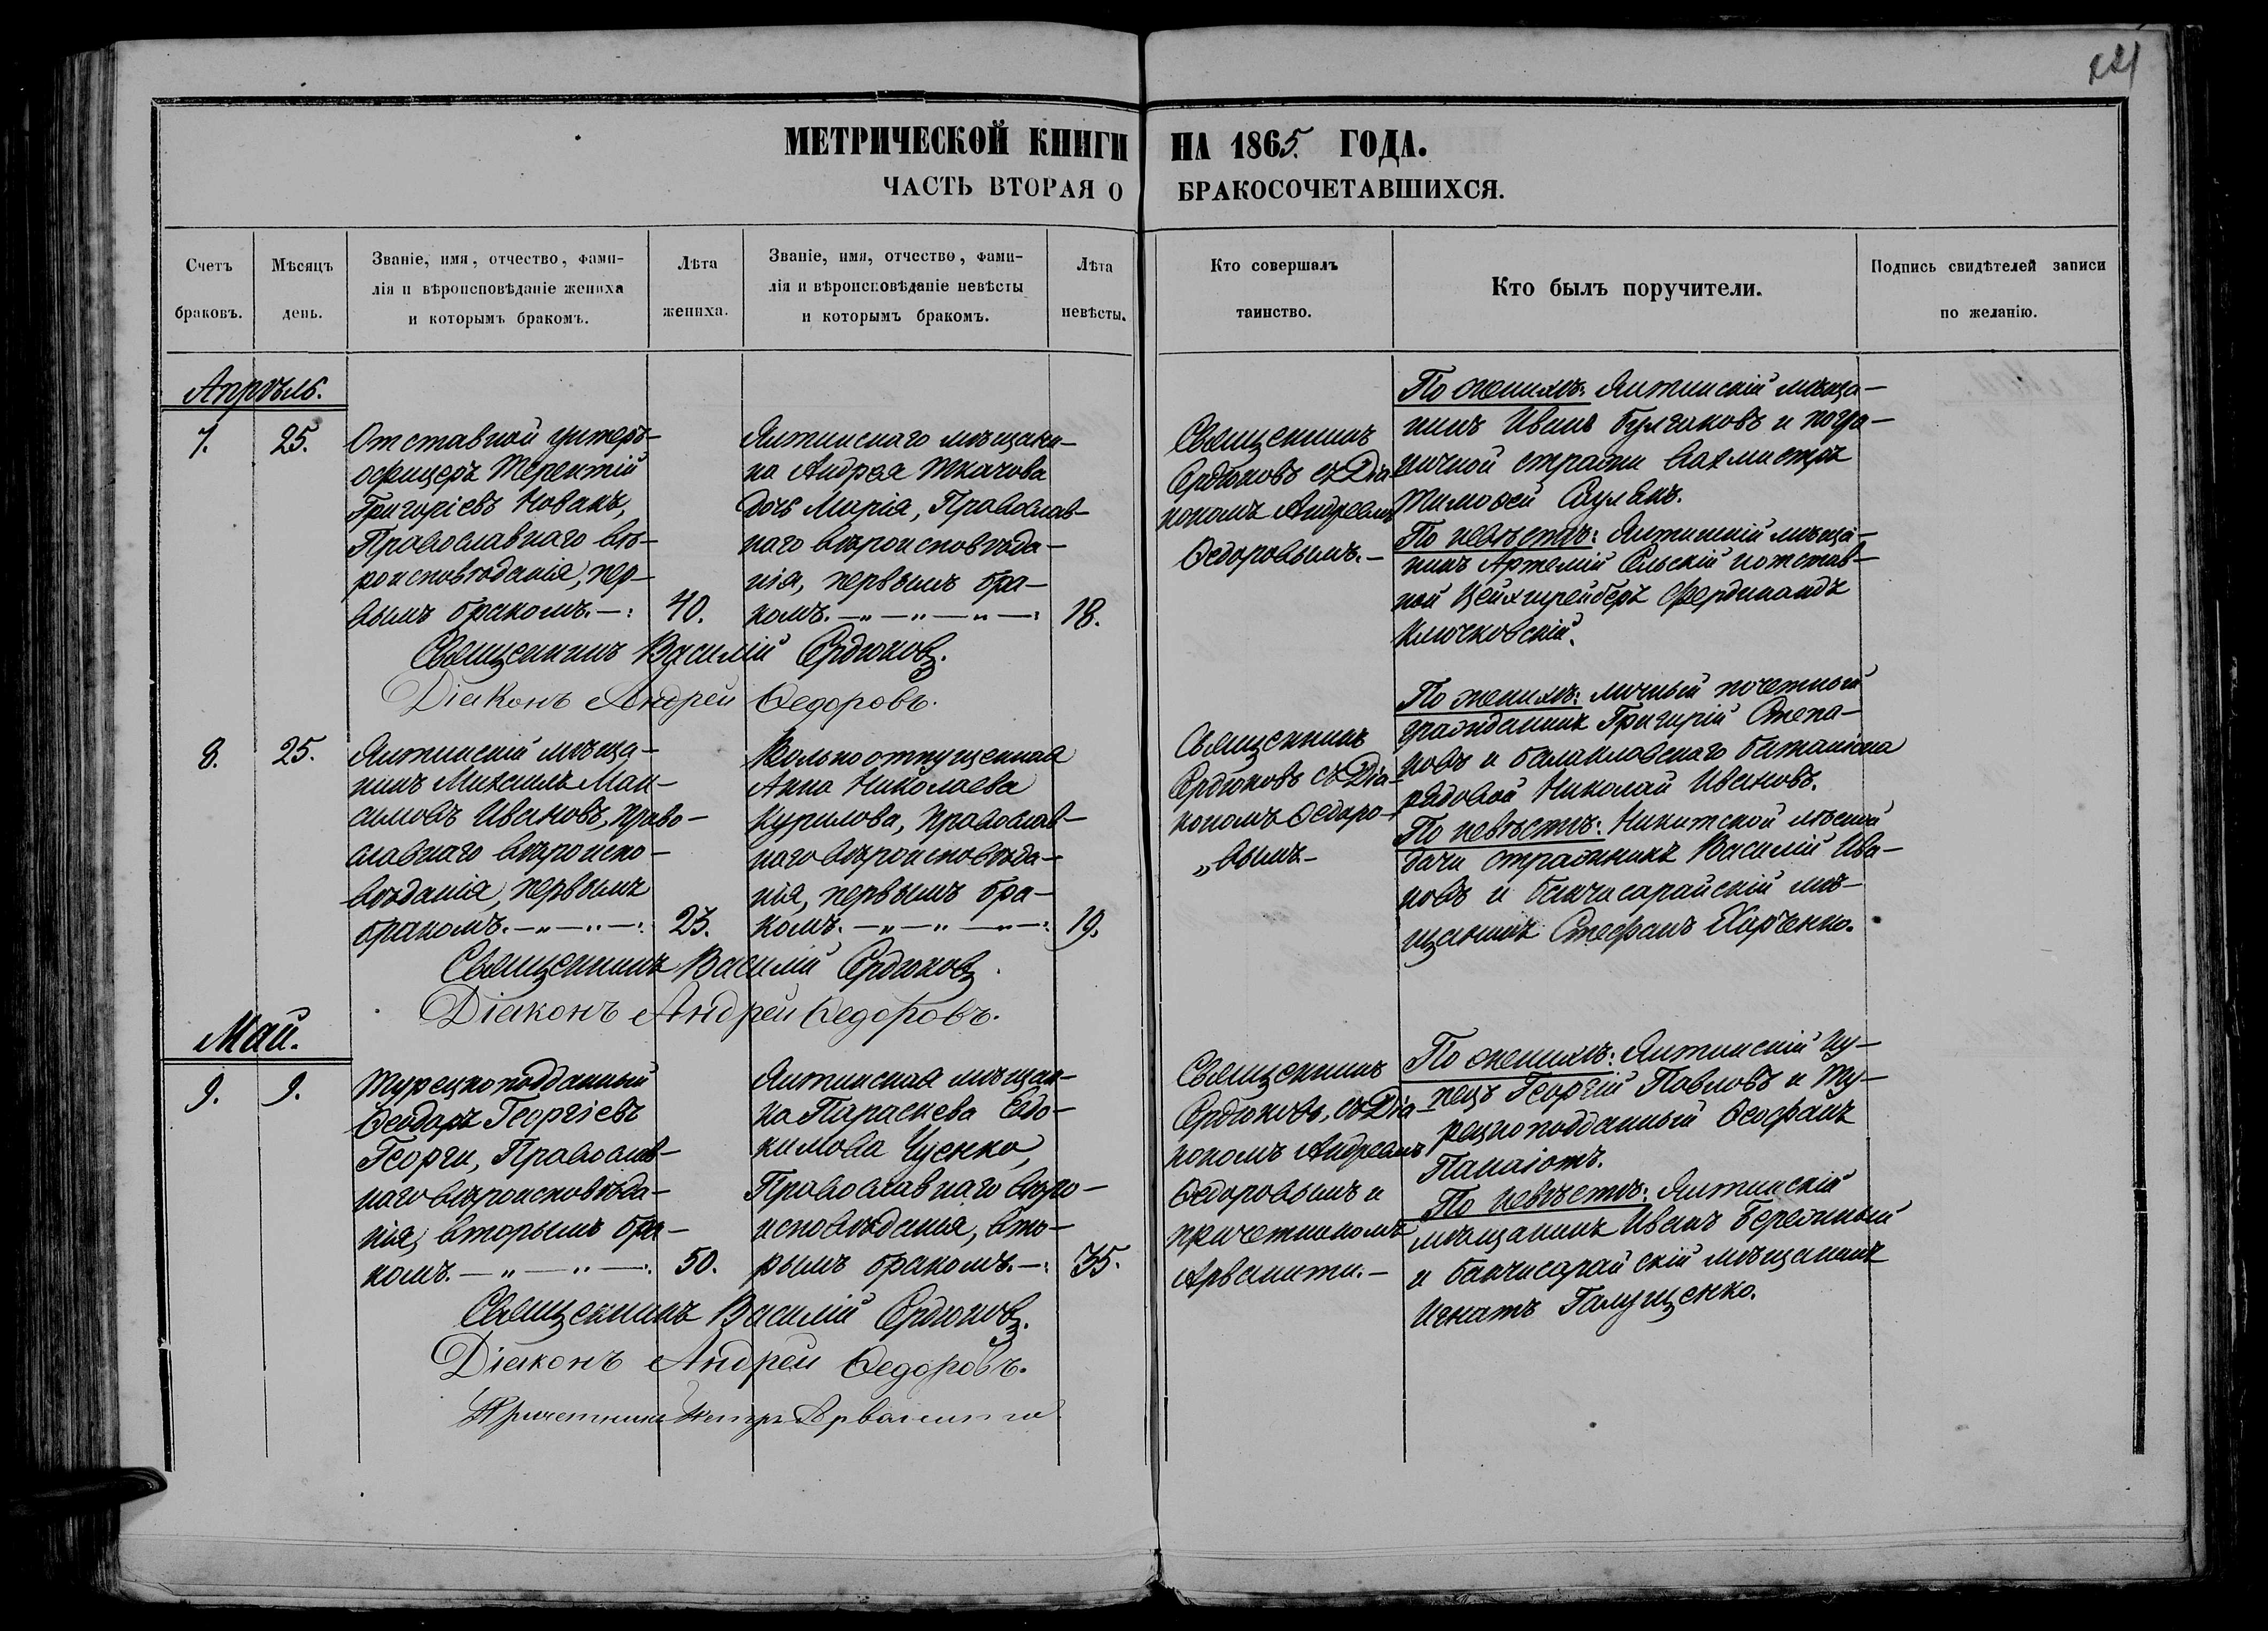 МЕТРИЧЕСКОЙ КНИГИ НА 1865. ГОДА.
ЧАСТЬ ВТОРАЯ О БРАКОСОЧЕТАВШИХСЯ.
Счетъ
браковъ.
Мѣсяцъ
день.
Званіе, имя, отчество, фами-
лія и вѣроисповѣданіе жениха
и которымъ бракомъ.
Лѣта
жениха.
Званіе, имя, отчество, фами-
лія и вѣроисповѣданіе невѣсты
и которымъ бракомъ.
Лѣта
невѣсты.
Кто совершалъ
таинство.
Кто былъ поручители.
Подпись свидѣтелей записи
по желанію.
Апрѣль.
7.
25.
Отставной унтеръ-
офицеръ Терентій
Григоріевъ Новакъ,
Православнаго вѣ-
роисповѣданія, пер-
вымъ бракомъ.—:
40.
Ялтинскаго мѣщани-
на Андрея Ткачова
дочь Марія, Православ-
наго вѣроисповѣда-
нія, первымъ бра-
комъ.—„—„—„—:
18.
Священникъ
Сердюковъ съ Діа-
кономъ Андреемъ
Ѳедоровымъ.—
По женихѣ: Ялтинскій мѣща-
нинъ Иванъ Булгаковъ и погра-
ничной стражи вахмистръ
Тимоѳей
По невѣстѣ: Ялтинскій мѣща-
нинъ Артемій Сльскій и отстав-
ной Цейхшрейберъ Фердинандъ
Ключковскій.
Священникъ Василій Сердюковъ.
Діаконъ Андрей Ѳедоровъ.
8.
25.
Ялтинскій мѣща-
нинъ Михаилъ Мак-
симовъ Ивановъ, право-
славнаго вѣроиспо-
вѣданія, первымъ
бракомъ.—„—„—:
23.
Вольноотпущенная
Анна Николаева
Курилова, Православ-
наго вѣроисповѣда-
нія, первымъ бра-
комъ.—„—„—„—:
19.
Священникъ
Сердюковъ съ Діа-
кономъ Ѳедоро-
„вымъ—
По женихѣ: личный почетный
гражданинъ Григорій Степа-
новъ и балаклавскаго баталіона
рядовой Николай Ивановъ.
По невѣстѣ: Никитской лѣсной
дачи стражникъ Василій Ива-
новъ и бахчисарайскій мѣ-
щанинъ Стефанъ Харченко.
Священникъ Василій Сердюковъ.
Діаконъ Андрей Ѳедоровъ.
Май.
9.
9.
Турецкоподданный
Ѳеодоръ Георгіевъ
Георги, Православ-
наго вѣроисповѣда-
нія, вторымъ бра-
комъ.—„—„—:
50.
Ялтинская мѣщан-
ка Параскева Евдо-
кимова
Православнаго вѣро-
исповѣданія, вто-
рымъ бракомъ.—:
35.
Священникъ
Сердюковъ, съ Діа-
кономъ Андреемъ
Ѳедоровымъ и
причетникомъ
Арванити.—
По женихѣ: Ялтинскій ку-
пецъ Георгій Павловъ и Ту-
рецкоподданный Ѳеофанъ
Панаіотъ.
По невѣстѣ: Ялтинскій
мѣщанинъ Иванъ Бережный
и бахчисарайскій мѣщанинъ
Игнатъ Галущенко.
Священникъ Василій Сердюковъ.
Діаконъ Андрей Ѳедоровъ.
Причетникъ Петръ Арванити